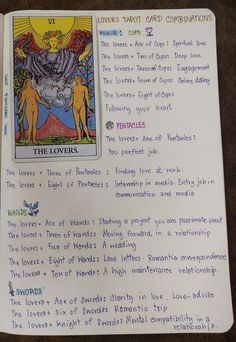 LOVERS TAROT CARD COMBINATIONS
VI
THE LOVERS.
MINOR: CUPS:
The lovers + Ace of Cups: Spiritual love
The lovers + Two of Cups: Deep love
The lovers + Three of Cups: Engagement
The lovers + Seven of Cups: Online dating
The lovers + Eight of Cups:
Following your heart
PENTACLES
The lovers + Ace of Pentacles:
You perfect job.
The lovers + Three of Pentacles: Finding love at work.
The lovers + Eight of Pentacles: Internship in media. Entry job in
communication and media
WANDS
The lovers + Ace of Wands: Starting a project you are passionate about
The lovers + Three of Wands: Moving forward in a relationship
The lovers + Four of Wands: A wedding
The lovers + Eight of Wands: Love letters. Romantic correspondence
The lovers + Ten of Wands: A high maintenance relationship.
SWORDS
The lovers + Ace of Swords: Clarity in love. Love-advise
The lovers + Six of Swords: Romantic trip
The lovers + Knight of Swords: Mental compatibility in a
relationship.